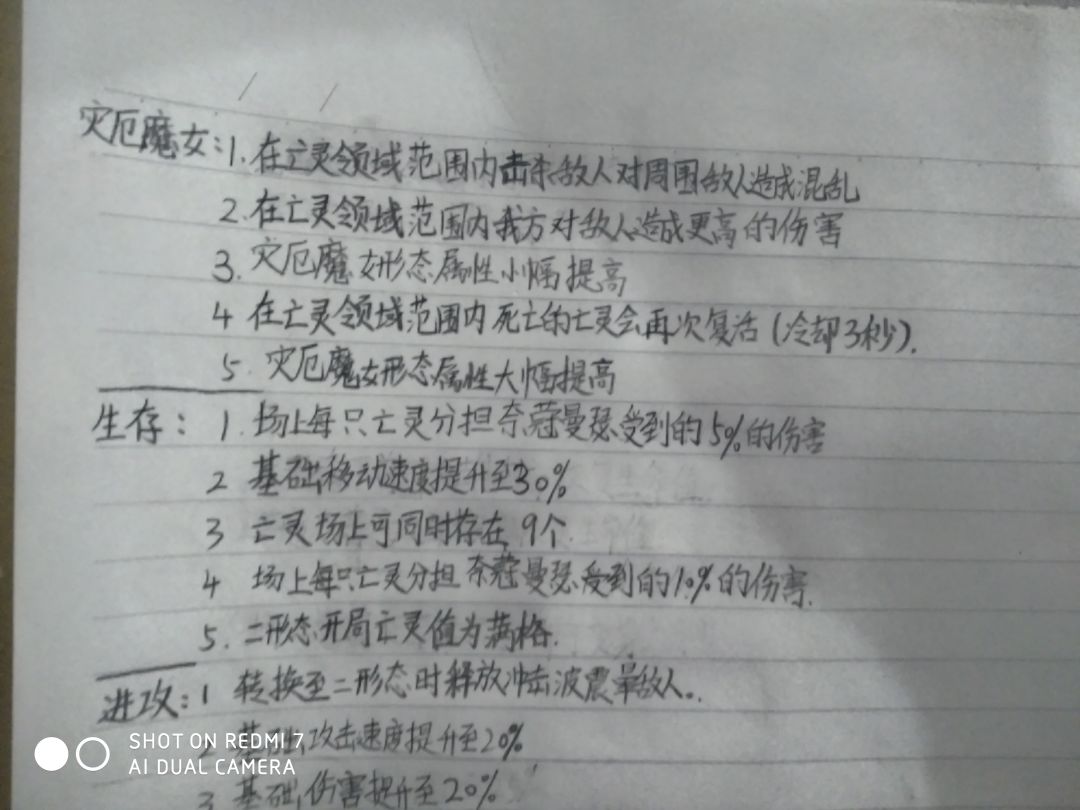 灾厄魔女:1.在亡灵领域范围内击杀敌人对周围敌人造成混乱
2.在亡灵领域范围内我方对敌人造成更高的伤害
3.灾厄魔女形态属性小幅提高
4 在亡灵领域范围内死亡的亡灵会再次复活(冷却3秒).
5.灾厄魔女形态属性大幅提高
生存:1.场上每只亡灵分担奈蔻曼瑟受到的5%的伤害
2 基础移动速度提升至30%
3 亡灵场上可同时存在9个
4 场上每只亡灵分担奈蔻曼瑟受到的10%的伤害.
5.二形态开局亡灵值为满格.
进攻:1 转换至二形态时释放冲击波震晕敌人.
2 基础攻击速度提升至20%
3 基础伤害提升至20%
SHOT ON REDMI 7
AI DUAL CAMERA